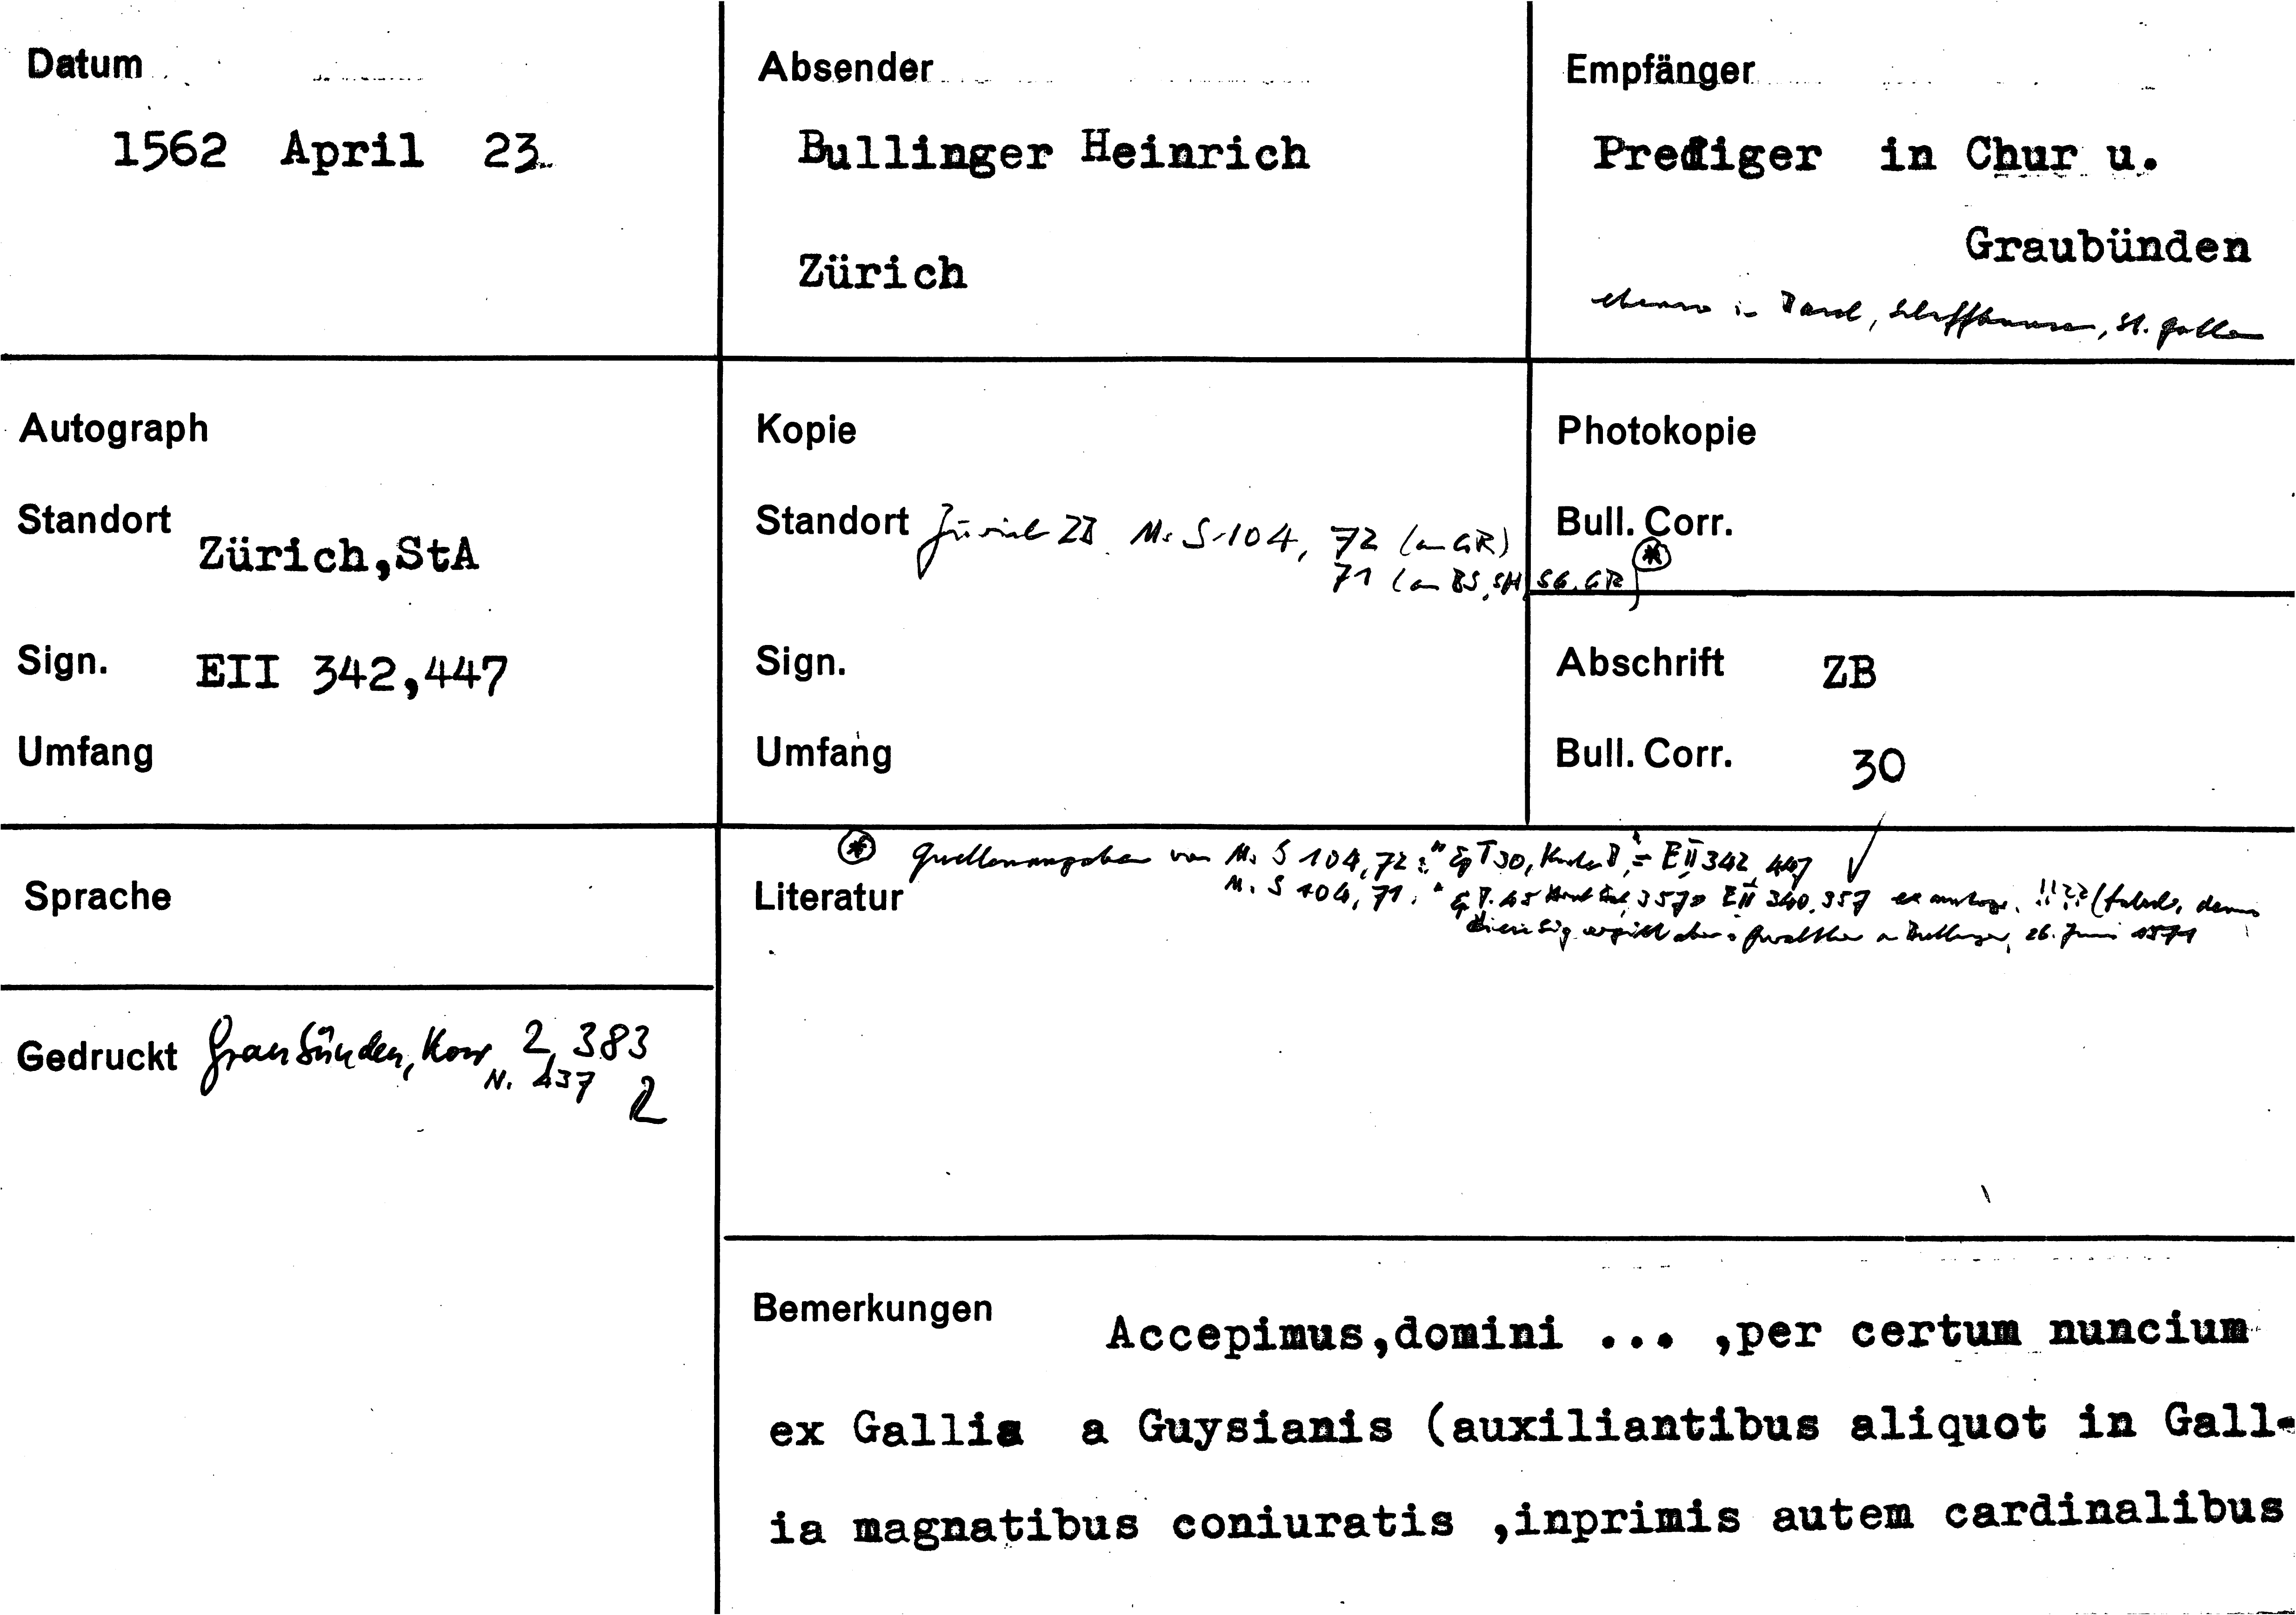 Datum
1562 April 23
Absender
Bullinger Heinrich
Zürich
Empfänger
Prediger in Chur u.
Graubünden
ebenso in Basel, Schaffhausen, St. Gallen
Autograph
Standort
Zürich,StA
Sign. EII 342,447
Umfang
Kopie
Standort Zürich ZB Ms S 104, 72 (an GR)
71 (an BS, SH, SG, GR) *
Sign.
Umfang
Photokopie
Bull. Corr.
Abschrift ZB
Bull. Corr. 30
Sprache
Gedruckt Graubünden, Korr 2, 383
N. 437
Literatur
* Quellenangaben von Ms S 104, 72: = EII 342, 447
Ms S 104, 71: EII 340, 357 !!?? (falsch, denn
diese Sig. ergibt aber: Gwalther an Bullinger, 26. Juni 1571
Bemerkungen
Accepimus,domini ... ,per certum nuncium
ex Gallia a Guysianis (auxiliantibus aliquot in Gall-
ia magnatibus coniuratis ,inprimis autem cardinalibus